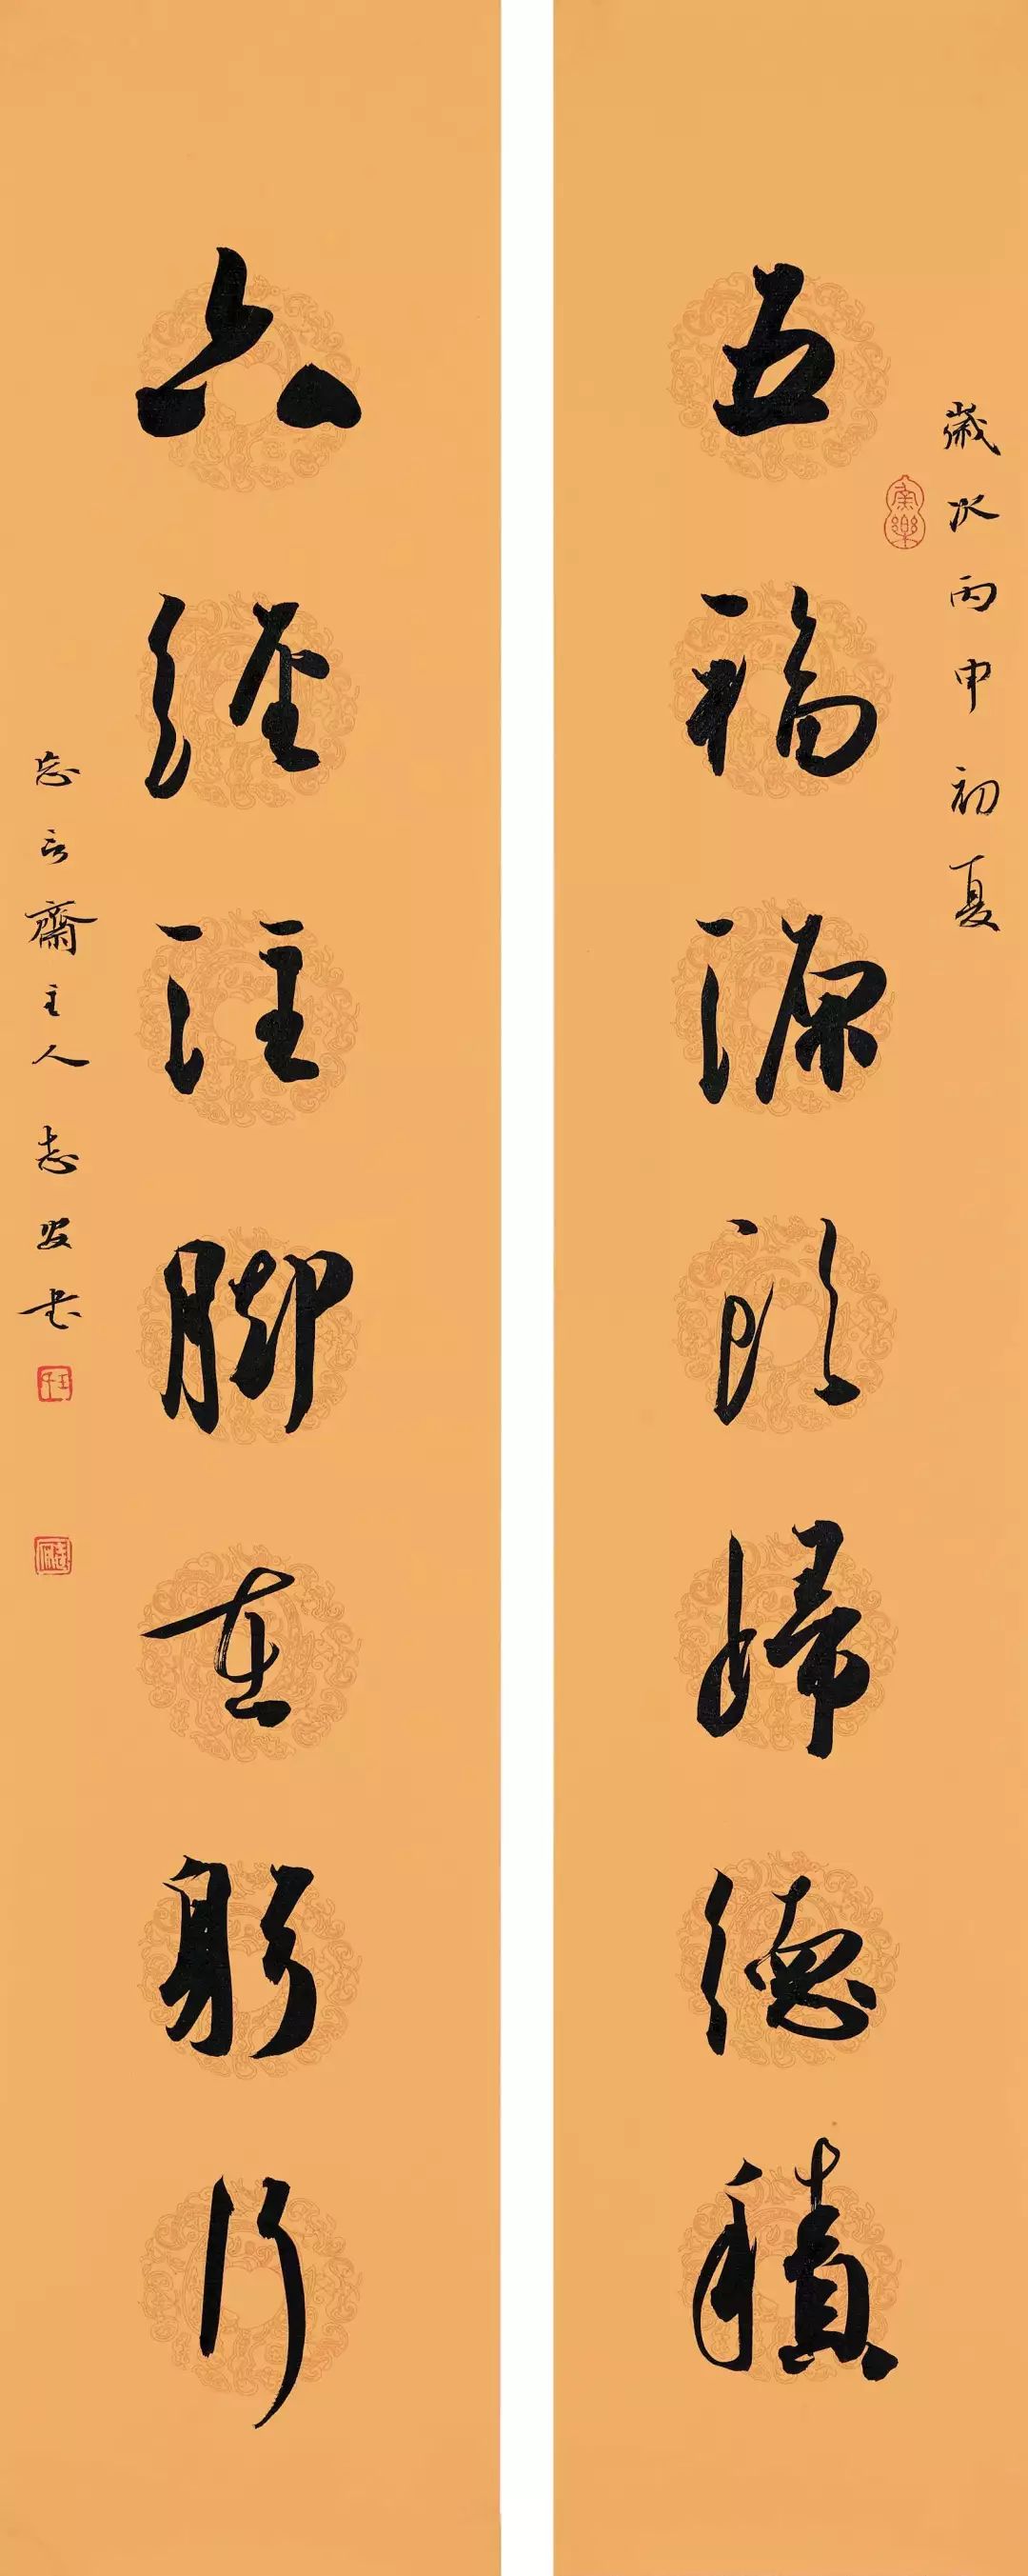 歲次丙申初夏
五福源頭歸德積
六經注腳在躬行
忘言齋主人志安书